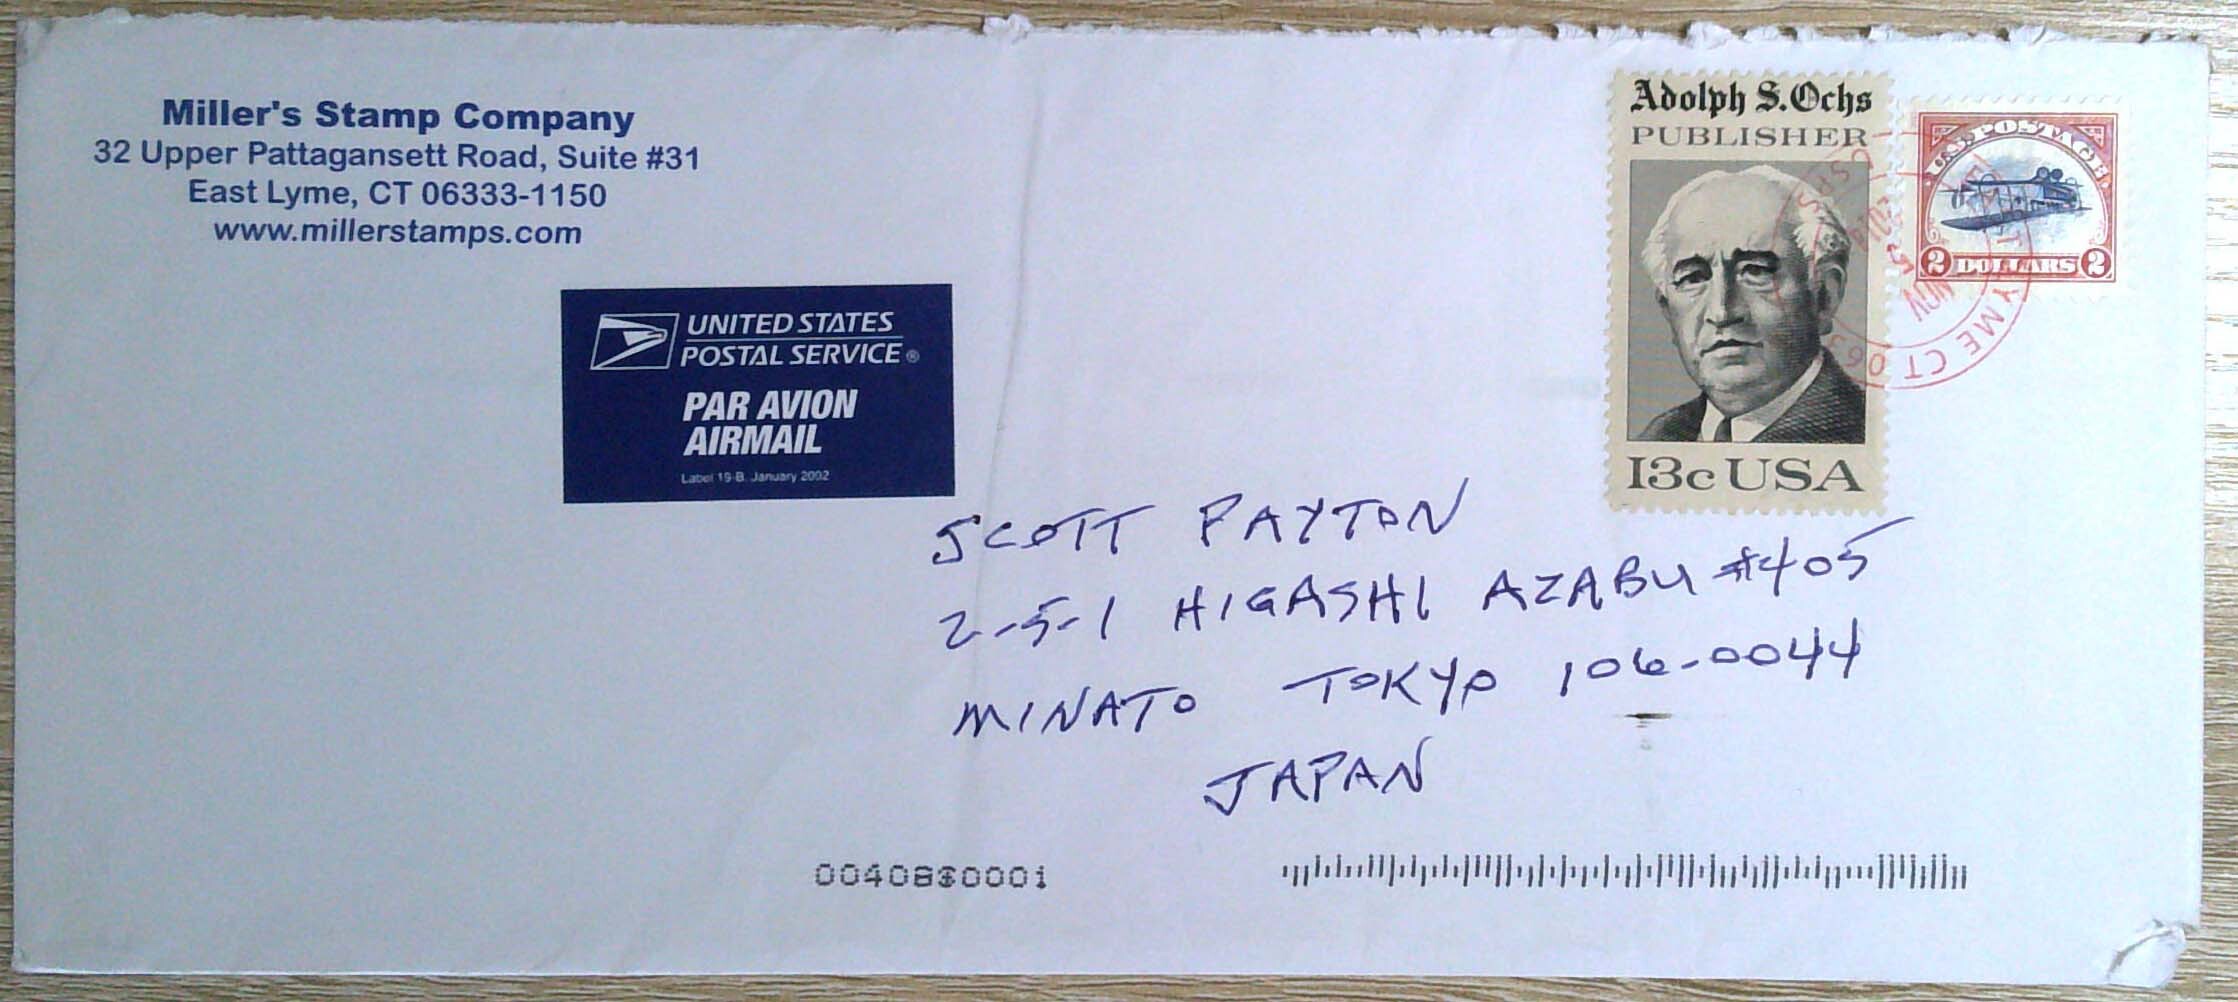 Miller's Stamp Company
32 Upper Pattagansett Road, Suite #31
East Lyme, CT 06333-1150
www.millerstamps.com
UNITED STATES
POSTAL SERVICE®
PAR AVION
AIRMAIL
Label 19-B, January 2002
Adolph S. Ochs
PUBLISHER
13c USA
U.S. POSTAGE
2 DOLLARS 2
USPS
NOV
LYME CT 063
SCOTT PAYTON
2-5-1 HIGASHI AZABU #405
MINATO TOKYO 106-0044
JAPAN